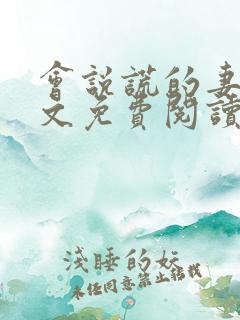 會說謊的妻
文免費閱讀
淺睡的妖
未經同意禁止轉載